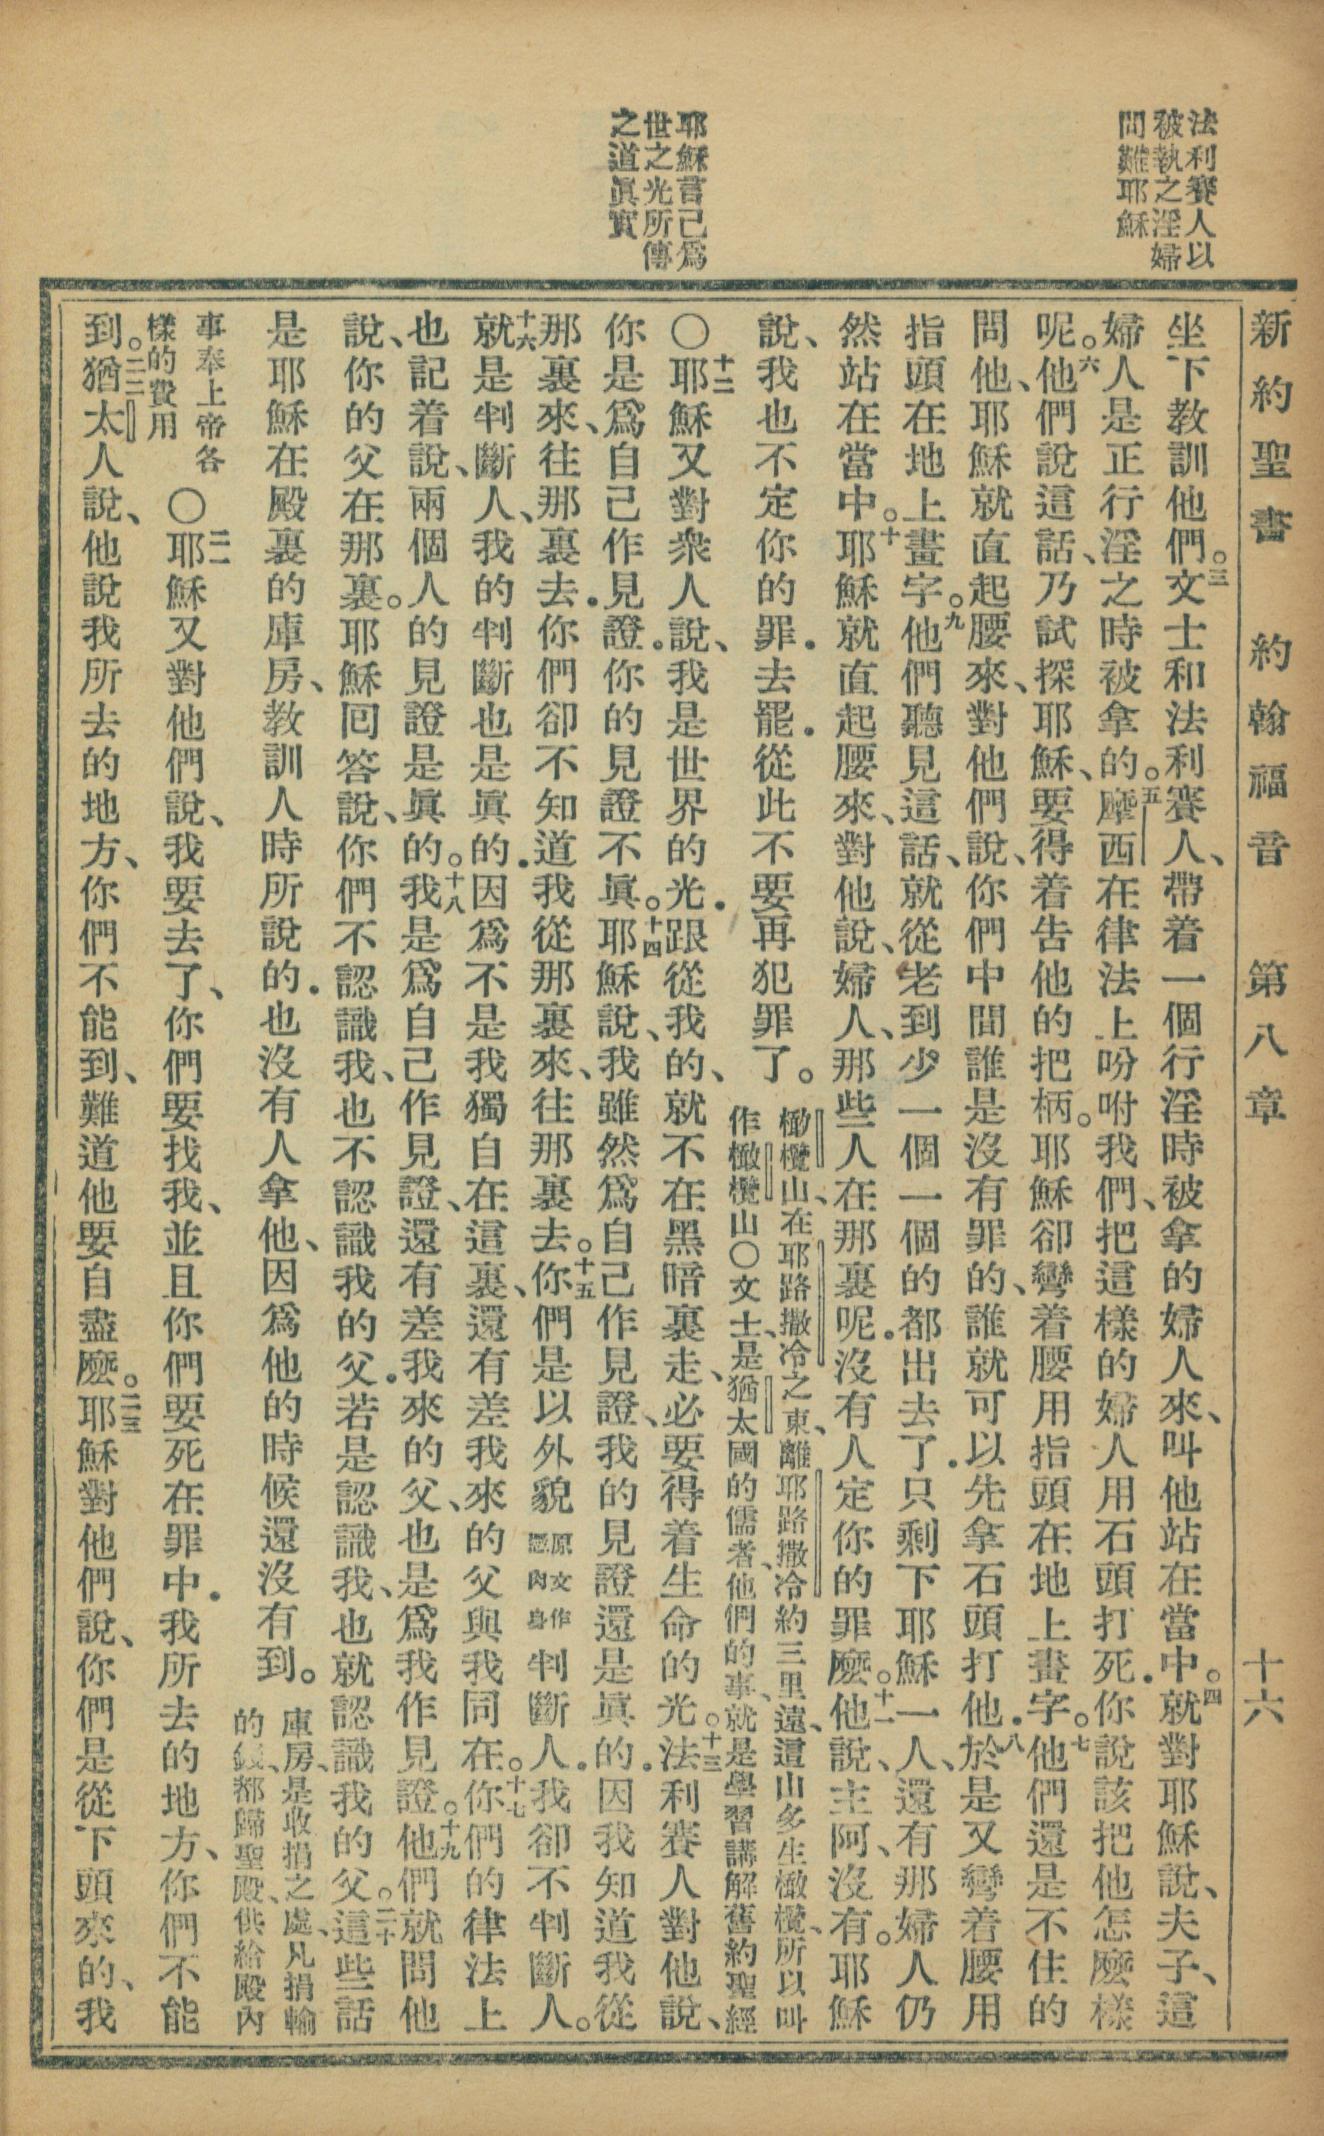 新約聖書 約翰福音 第八章 十六
法利賽人以
被執之淫婦
問難耶穌
耶穌言己爲
世之光所傳
之道眞實
坐下教訓他們。三文士和法利賽人、帶着一個行淫時被拿的婦人來、叫他站在當中。四就對耶穌說、夫子、這
婦人是正行淫之時被拿的。五摩西在律法上吩咐我們、把這樣的婦人用石頭打死．你說該把他怎麼樣
呢。六他們說這話、乃試探耶穌、要得着告他的把柄。耶穌卻彎着腰用指頭在地上畫字。七他們還是不住的
問他、耶穌就直起腰來、對他們說、你們中間誰是沒有罪的、誰就可以先拿石頭打他．八於是又彎着腰用
指頭在地上畫字。九他們聽見這話、就從老到少一個一個的都出去了．只剩下耶穌一人、還有那婦人仍
然站在當中。十耶穌就直起腰來、對他說、婦人、那些人在那裏呢．沒有人定你的罪麼。十一他說、主阿、沒有。耶穌
說、我也不定你的罪．去罷．從此不要再犯罪了。
橄欖山、在耶路撒冷之東、離耶路撒冷約三里遠、這山多生橄欖、所以叫
作橄欖山〇文士、是猶太國的儒者、他們的事、就是學習講解舊約聖經
〇十二耶穌又對衆人說、我是世界的光．跟從我的、就不在黑暗裏走、必要得着生命的光。十三法利賽人對他說、
你是爲自己作見證。你的見證不眞。十四耶穌說、我雖然爲自己作見證、我的見證還是眞的．因我知道我從
那裏來、往那裏去．你們卻不知道我從那裏來、往那裏去。十五你們是以外貌原文作憑肉身判斷人．我卻不判斷人。
十六就是判斷人、我的判斷也是眞的．因爲不是我獨自在這裏、還有差我來的父與我同在。十七你們的律法上
也記着說、兩個人的見證是眞的。十八我是爲自己作見證、還有差我來的父、也是爲我作見證。十九他們就問他
說、你的父在那裏。耶穌回答說、你們不認識我、也不認識我的父．若是認識我、也就認識我的父。二十這些話
是耶穌在殿裏的庫房、教訓人時所說的．也沒有人拿他、因爲他的時候還沒有到。
庫房、是收捐之處、凡捐輸
的錢、都歸聖殿、供給殿內
事奉上帝各
樣的費用
〇二一耶穌又對他們說、我要去了、你們要找我、並且你們要死在罪中．我所去的地方、你們不能
到。二二猶太人說、他說我所去的地方、你們不能到、難道他要自盡麼。二三耶穌對他們說、你們是從下頭來的、我